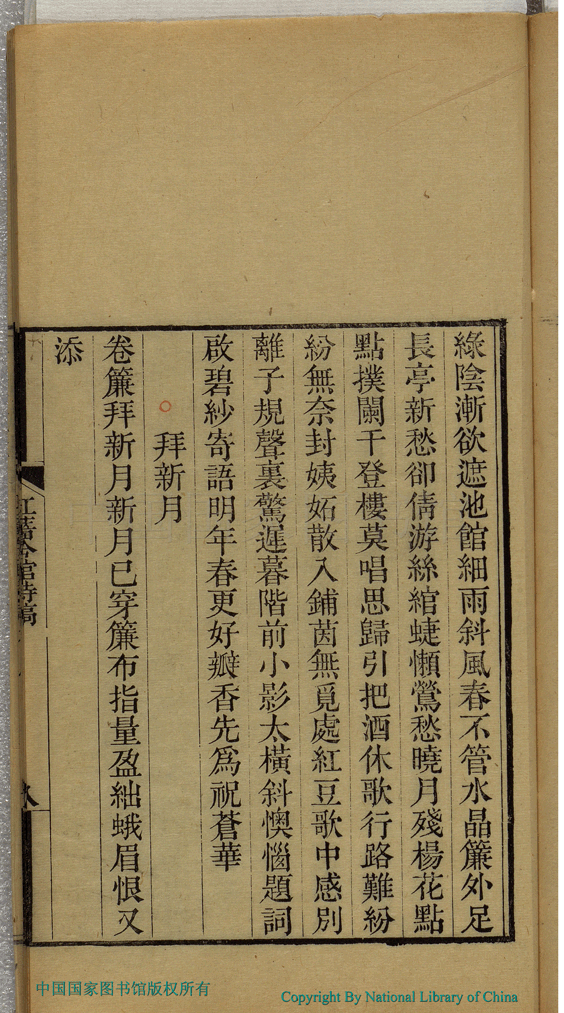 綠陰漸欲遮池館細雨斜風春不管水晶簾外足
長亭新愁卻倩游絲綰蜨懶鶯愁曉月殘楊花點
點撲闌干登樓莫唱思歸引把酒休歌行路難紛
紛無奈封姨妬散入鋪茵無覓處紅豆歌中感別
離子規聲裏驚遲暮階前小影太橫斜懊惱題詞
啟碧紗寄語明年春更好瓣香先爲祝蒼華
拜新月
卷簾拜新月新月已穿簾布指量盈絀蛾眉恨又
添
中国国家图书馆版权所有
Copyright By National Library of China